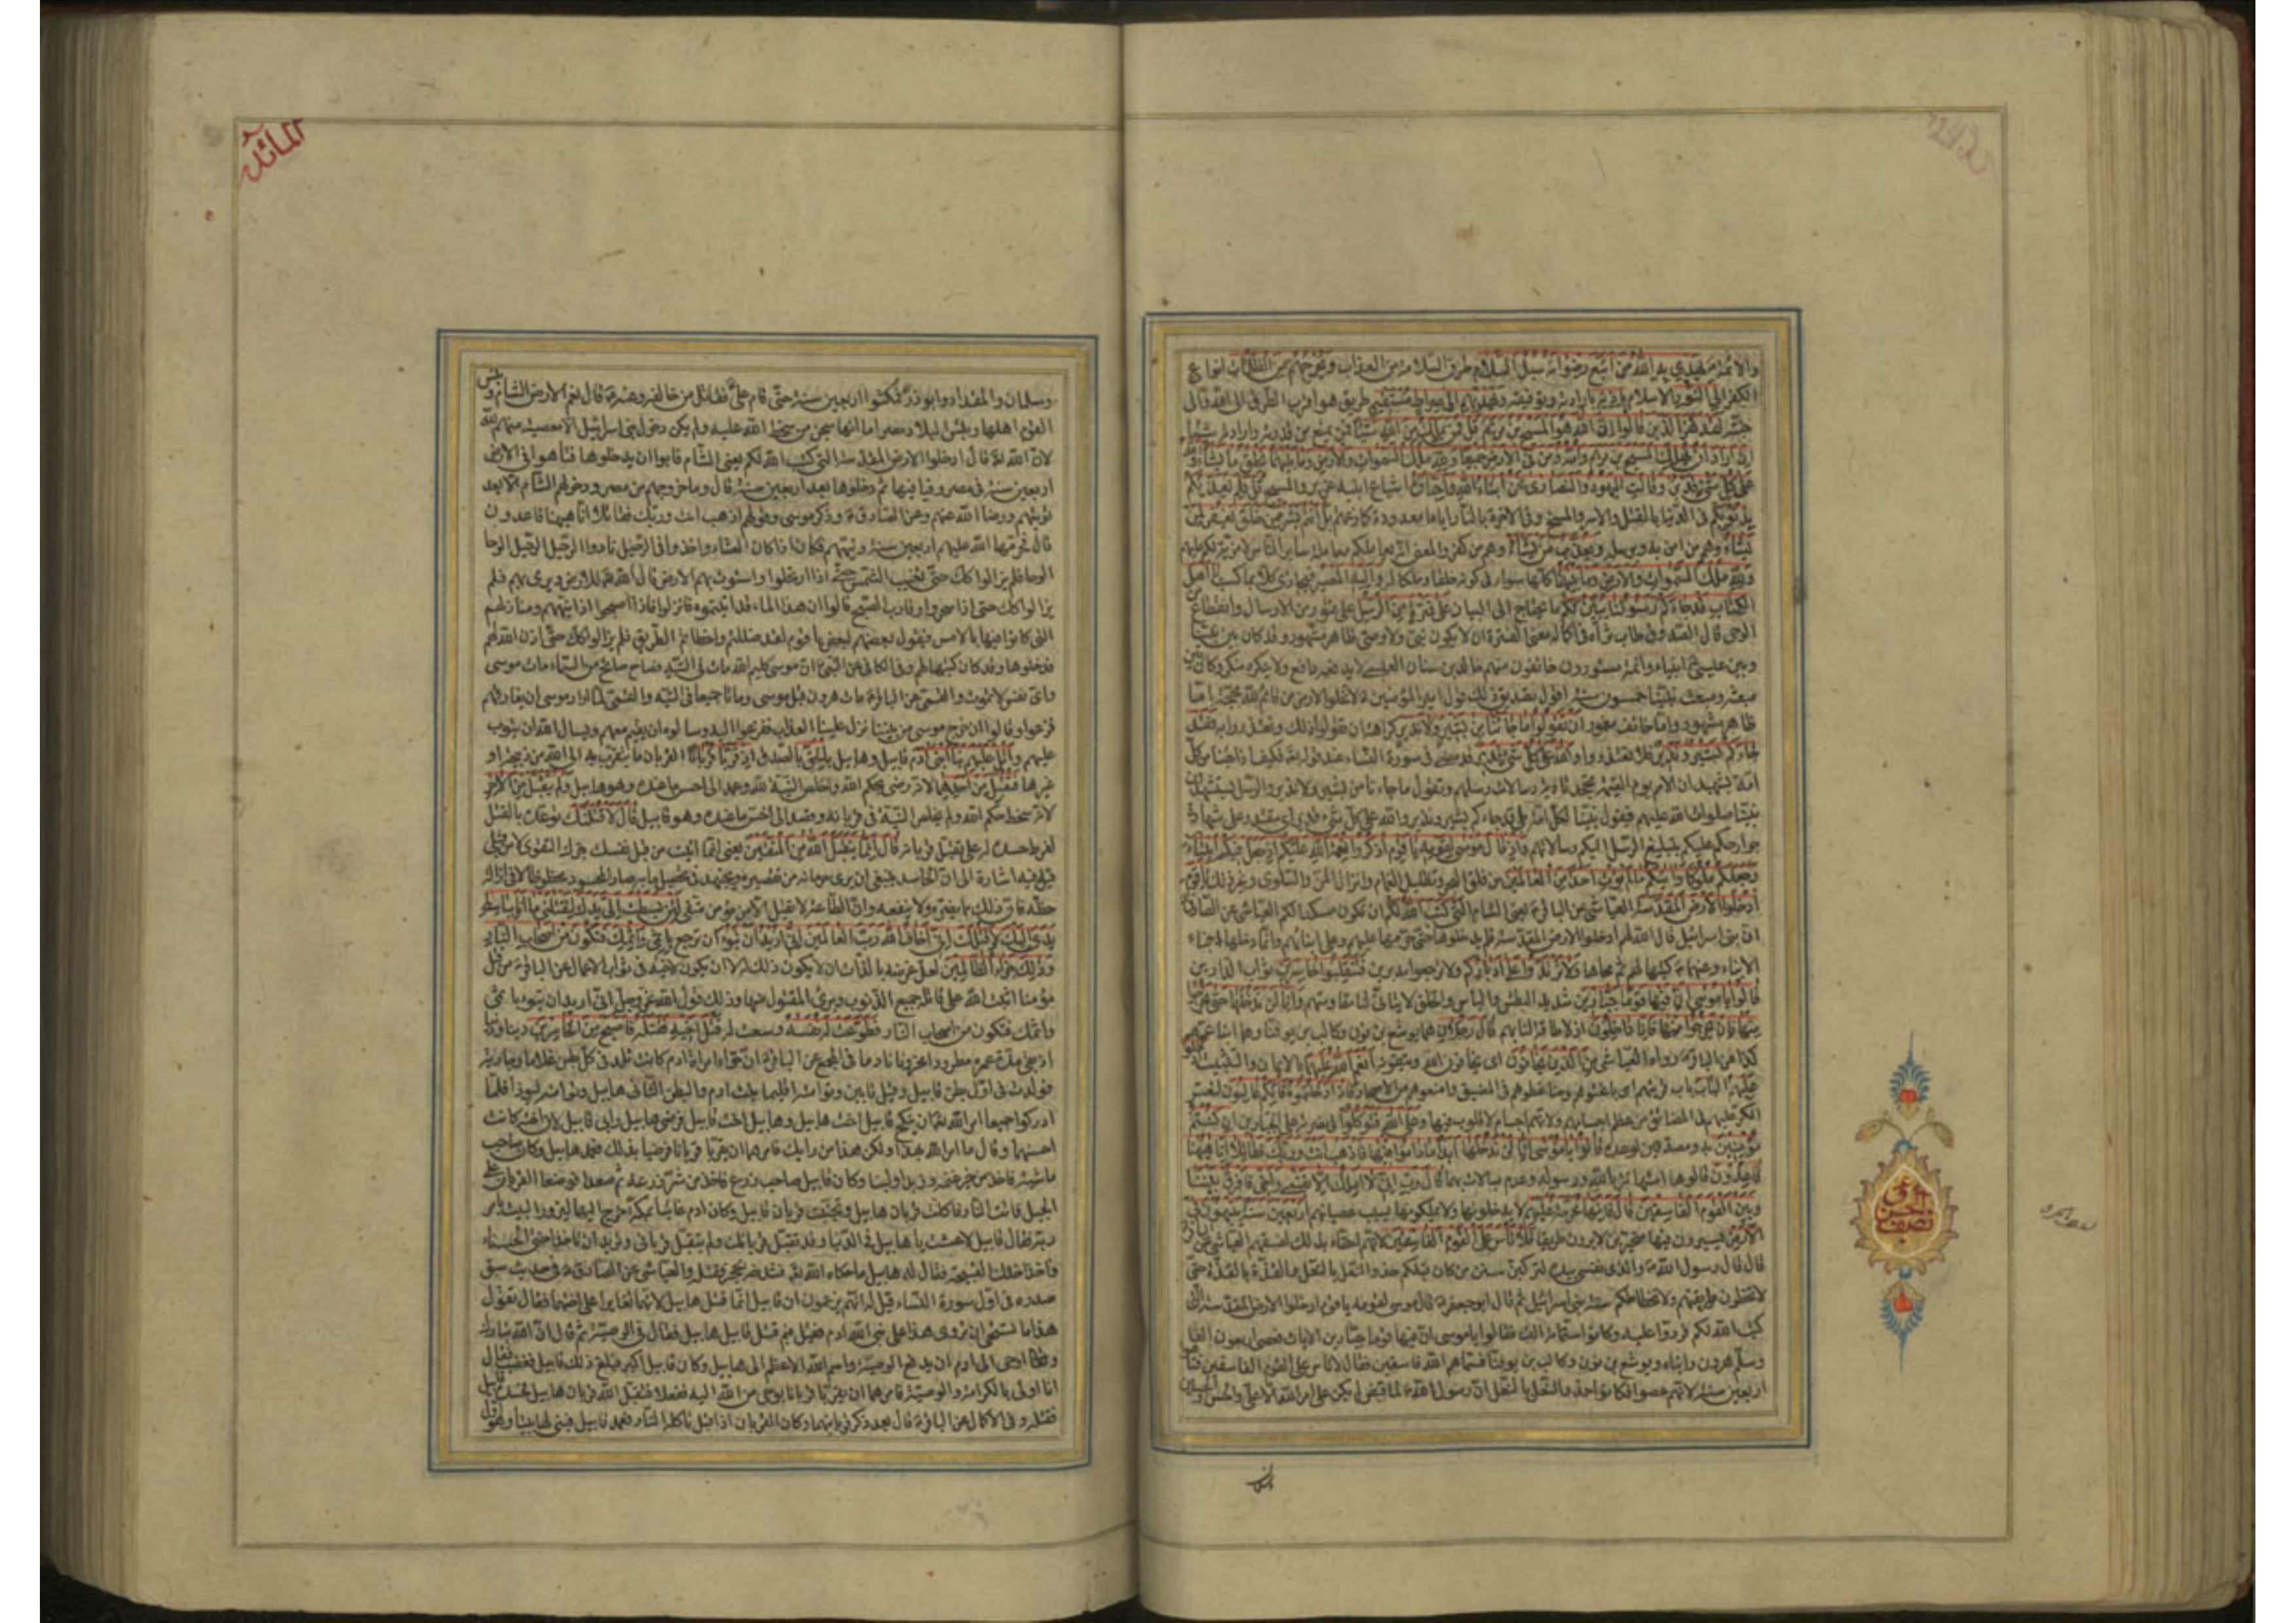 والائمة يهدي به الله من اتبع رضوانه سبل السلام طرق السلامة من العذاب ويخرجهم من الظلمات انواع
الكفر الى النور الاسلام باذنه بارادته وتوفيقه ويهديهم الى صراط مستقيم طريق هو اقرب الطرق الى الله
لقد كفر الذين قالوا ان الله هو المسيح بن مريم قل فمن يملك من الله شيئا فمن يمنع من قدرته وارادته شيئا
ان اراد ان يهلك المسيح بن مريم وامه ومن في الارض جميعا ولله ملك السموات والارض وما بينهما يخلق ما يشاء والله
على كل شئ قدير وقالت اليهود والنصارى نحن ابناء الله واحباؤه اشياع ابنيه عزير والمسيح قل فلم يعذبكم
بذنوبكم في الدنيا بالقتل والاسر والمسخ وفي الاخرة بالنار اياما معدودة كما زعمتم بل انتم بشر ممن خلق يغفر لمن
يشاء وهم من امن به وبرسله ويعذب من يشاء وهم من كفر والمعنى انه يعاملكم معاملة ساير الناس لا مزية لكم عليهم
ولله ملك السموات والارض وما بينهما كلها سواء في كونه خلقا وملكا له واليه المصير فيجازي كلا بما كسب يا اهل
الكتاب قد جاءكم رسولنا يبين لكم ما يحتاج الى البيان على فترة من الرسل على فتور من الارسال وانقطاع من
الوحي قال الصدوق طاب ثراه في اكماله معنى الفترة ان لا يكون نبي ولا وصي ظاهر مشهور وقد كان بين نبينا
وبين عيسى انبياء وائمة مستورون خائفون منهم خالد بن سنان العبسي لا يدفعه دافع ولا ينكره منكر وكان بين
مبعثه ومبعث نبينا خمسون سنة اقول تصديق ذلك قول امير المؤمنين لا تخلو الارض من قائم لله بحجة اما
ظاهر مشهور واما خائف مغمور ان تقولوا ما جاءنا من بشير ولا نذير كراهة ان تقولوا ذلك وتعتذروا به فقد
جاءكم بشير ونذير فلا تعتذروا والله على كل شئ قدير قد مضى في سورة النساء عند قوله فكيف اذا جئنا من كل
امة بشهيد ان الامم يوم القيمة تجحد تادية رسالات رسلهم وتقول ما جاءنا من بشير ولا نذير والرسل يستشهدون
نبينا صلوات الله عليهم فيقول نبينا لكل امة بلى قد جاءكم بشير ونذير والله على كل شئ قدير اي مقتدر على شهادة
جوارحكم عليكم بتبليغ الرسل اليكم رسالاتهم واذ قال موسى لقومه يا قوم اذكروا نعمة الله عليكم اذ جعل فيكم انبياء
وجعلكم ملوكا واتيكم ما لم يؤت احدا من العالمين من فلق البحر وتظليل الغمام وانزال المن والسلوى وغير ذلك يا قوم
ادخلوا الارض المقدسة العياشي عن الباقر يعني الشام التي كتب الله لكم ان تكون مسكنا لكم العياشي عن الصادق
ان بني اسرائيل قال الله لهم ادخلوا الارض المقدسة فلم يدخلوها حتى حرمها عليهم وعلى ابنائهم وانما دخلها ابناء
الابناء وعنهما كتبها لهم ثم محاها ولا ترتدوا على ادباركم ولا ترجعوا مدبرين فتنقلبوا خاسرين ثواب الدارين
قالوا يا موسى ان فيها قوما جبارين شديد البطش والباس والخلق لا يتاتى لنا مقاومتهم وانا لن ندخلها حتى يخرجوا
منها فان يخرجوا منها فانا داخلون اذ لا طاقة لنا بهم قال رجلان هما يوشع بن نون وكالب بن يوفنا وهما ابنا عمه
كذا عن الباقر رواه العياشي من الذين يخافون اي يخافون الله ويتقونه انعم الله عليهما بالايمان والتثبيت ادخلوا
عليهم الباب باب قريتهم اي باغتوهم وضاغطوهم في المضيق وامنعوهم من الاصحار فاذا دخلتموه فانكم غالبون لتعسر
الكر عليهم في المضائق من عظم اجسامهم ولانهم اجسام لا قلوب فيها وعلى الله فتوكلوا في نصرته على الجبارين ان كنتم
مؤمنين به ومصدقين لوعده قالوا يا موسى انا لن ندخلها ابدا ما داموا فيها فاذهب انت وربك فقاتلا انا هيهنا
قاعدون قالوها استهانة بالله ورسوله وعدم مبالات بهما قال رب اني لا املك الا نفسي واخي فافرق بيننا
وبين القوم الفاسقين قال فانها محرمة عليهم لا يدخلونها ولا يملكونها بسبب عصيانهم اربعين سنة يتيهون في
الارض يسيرون فيها متحيرين لا يرون طريقا فلا تاس على القوم الفاسقين لانهم احقاء بذلك لفسقهم العياشي عن الباقر
قال قال رسول الله والذي نفسي بيده لتركبن سنن من كان قبلكم حذو النعل بالنعل والقذة بالقذة حتى
لا تخطئون طريقهم ولا تخطاكم سنة بني اسرائيل ثم قال ابو جعفر قال موسى لقومه يا قوم ادخلوا الارض المقدسة التي
كتب الله لكم فردوا عليه وكانوا ستمائة الف فقالوا يا موسى ان فيها قوما جبارين الايات فعصى اربعون الفا
وسلم هرون وابناه ويوشع بن نون وكالب بن يوفنا فسماهم الله فاسقين فقال لا تاس على القوم الفاسقين فتاهوا
اربعين سنة لانهم عصوا فكانوا حذو النعل بالنعل ان رسول الله لما قبض لم يكن على امر الله الا علي والحسن والحسين
وسلمان
نصف الحزب
المائدة
وسلمان والمقداد وابو ذر فمكثوا اربعين سنة حتى قام علي فقاتل من خالفه وعنه قال نعم الارض الشام وبئس
القوم اهلها وبئس البلاد مصر اما انها سجن من سخط الله عليه ولم يكن دخول بني اسرائيل الا معصية منهم لله
لان الله قال ادخلوا الارض المقدسة التي كتب الله لكم يعني الشام فابوا ان يدخلوها فتاهوا في الارض
اربعين سنة في مصر وفيافيها ثم دخلوها بعد اربعين سنة قال وما خروجهم من مصر ودخولهم الشام الا بعد
توبتهم ورضا الله عنهم وعن الصادق وذكر موسى وقولهم اذهب انت وربك فقاتلا انا هيهنا قاعدون
قال فحرمها الله عليهم اربعين سنة وتيههم فكان اذا كان العشاء واخذوا في الرحيل نادوا الرحيل الرحيل الوحا
الوحا فلم يزالوا كك حتى تغيب الشمس حتى اذا ارتحلوا واستوت بهم الارض قال الله للارض ديري بهم فلم
يزالوا كك حتى اذا اسحروا وقارب الصبح قالوا ان هذا الماء قد اتيتموه فانزلوا فاذا اصبحوا اذا تيههم ومنازلهم
التي كانوا فيها بالامس فيقول بعضهم لبعض يا قوم لقد ضللتم واخطاتم الطريق فلم يزالوا كك حتى اذن الله لهم
فدخلوها وقد كان كتبها لهم وفي الكافي عن النبي ان موسى كليم الله مات في التيه فصاح صائح من السماء مات موسى
واي نفس لا تموت والقمي عن الباقر مات هرون قبل موسى وماتا جميعا في التيه والقمي لما اراد موسى ان يفارقهم
فزعوا وقالوا ان خرج موسى من بيننا نزل علينا العذاب ففزعوا اليه وسالوه ان يقيم معهم ويسال الله ان يتوب
عليهم واتل عليهم نبا ابني ادم قابيل وهابيل بالحق بالصدق اذ قربا قربانا القربان ما يتقرب به الى الله من ذبيحة او
غيرها فتقبل من احدهما لانه رضي بحكم الله واخلص النية لله وعمد الى احسن ما عنده وهو هابيل ولم يتقبل من الاخر
لانه سخط حكم الله ولم يخلص النية في قربانه وقصد الى اخس ما عنده وهو قابيل قال لاقتلنك توعده بالقتل
لفرط حسده له على تقبل قربانه قال انما يتقبل الله من المتقين يعني انما اتيت من قبل نفسك بترك التقوى لا من قبلي
قيل فيه اشارة الى ان الحاسد ينبغي ان يرى حرمانه من تقصيره ويجتهد في تحصيل ما به صار المحسود محظوظا لا في ازالة
حظه فان ذلك مما يضره ولا ينفعه وان الطاعة لا تقبل الا من مؤمن متق لئن بسطت الي يدك لتقتلني ما انا بباسط
يدي اليك لاقتلك اني اخاف الله رب العالمين اني اريد ان تبوء ان ترجع باثمي واثمك فتكون من اصحاب النار
وذلك جزاء الظالمين لعل غرضه بالذات ان لا يكون ذلك له لا ان يكون لاخيه في ثواب الاعمال عن الباقر من قتل
مؤمنا اثبت الله على قاتله جميع الذنوب وبرئ المقتول منها وذلك قول الله عز وجل اني اريد ان تبوء باثمي
واثمك فتكون من اصحاب النار فطوعت له نفسه وسعت له قتل اخيه فقتله فاصبح من الخاسرين دينا ودنيا
اذ بقي مدة عمره مطرودا محزونا نادما في المجمع عن الباقر ان حواء امراة ادم كانت تلد في كل بطن غلاما وجارية
فولدت في اول بطن قابيل وقيل قابين وتوامته اقليما بنت ادم والبطن الثاني هابيل وتوامته لبوذا فلما
ادركوا جميعا امر الله ان ينكح قابيل اخت هابيل وهابيل اخت قابيل فرضي هابيل وابى قابيل لان اخته كانت
احسنهما وقال ما امر الله بهذا ولكن هذا من رايك فامرهما ان يقربا قربانا فرضيا بذلك فعمد هابيل وكان صاحب
ماشية فاخذ من خير غنمه زبدا ولبنا وكان قابيل صاحب زرع فاخذ من شر زرعه ثم صعدا فوضعا القربان على
الجبل فاتت النار فاكلت قربان هابيل وتجنبت قربان قابيل وكان ادم غائبا بمكة خرج اليها ليزور البيت بامر
ربه فقال قابيل لا عشت يا هابيل في الدنيا وقد تقبل قربانك ولم يتقبل قرباني وتريد ان تاخذ اختي الحسناء
واخذ اختك القبيحة فقال له هابيل ما حكاه الله فشدخه بحجر فقتله والعياشي عن الصادق في حديث سبق
صدره في اول سورة النساء قيل له انهم يزعمون ان قابيل انما قتل هابيل لانهما تغايرا على اختهما فقال تقول
هذا اما تستحيي ان تروي هذا على نبي الله ادم فقيل فبم قتل قابيل هابيل فقال في الوصية ثم قال ان الله تبارك
وتعالى اوحى الى ادم ان يدفع الوصية واسم الله الاعظم الى هابيل وكان قابيل اكبر فبلغ ذلك قابيل فغضب فقال
انا اولى بالكرامة والوصية فامرهما ان يقربا قربانا بوحي من الله اليه ففعلا فتقبل الله قربان هابيل فحسده قابيل
فقتله وفي الاكمال عن الباقر قال بعد ذكر قربانهما وكان القربان اذا قبل تاكله النار فعمد قابيل فبنى لها بيتا وهو اول